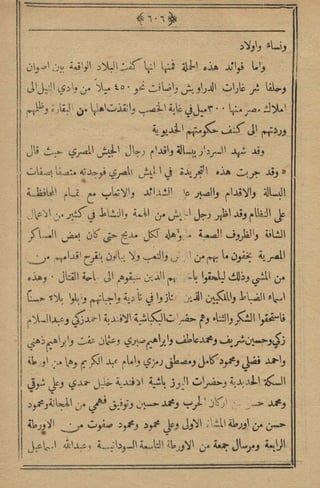 ﴿ ٦٠٦ ﴾
ونساء واولاد
واما فوائد هذه الحملة فمنها انها كفت البلاد الواقعة بين اصوان
وحلفا شر غارات الدراويش واضافت نحو ٤٥٠ ميلاً من وادي النيل الى
املاك مصر منها ٣٠٠ ميل في غاية الخصب وانقذت اهلها من البقارة وظلمهم
وردتهم الى كنف حكومتهم الخديوية
وقد شهد السردار ببسالة واقدام رجال الجيش المصري حيث قال
« وقد جربت هذه التجريدة في الجيش المصري فوجدته متصفاً بصفات
البسالة والاقدام والصبر على الشدائد والاتعاب مع تمام المحافظة
على النظام وقد اظهر رجل الجيش من الهمة والنشاط في كثير من الاعمال
الشاقة والظروف الصعبة ما أهله لكل مديح حتى كان بعض العساكر
المصرية يخفون ما بهم من والتعب ولا يبالون بتقرح اقدامهم من
من المشي وذلك ليلحقوا الذين سبقوهم الى ساحة القتال. وهذه
اسماء الضباط والملكيين الذين امتازوا في تأدية واجباتهم وابلوا بلاء حسناً
فاستحقوا الشكر والثناء وهم حضرات البكباشية الافندية احمد زكي وعبد السلام
زكي وحسين شريف ومحمد عاطف وابراهيم صبري وعثمان عفت وابراهيم ذهني
واحمد فضلي ومحمود كامل ومصطفى رمزي وامام عبد الكريم وهما من اورطة
السكة الحديدية وحضرات اليوزباشية الافندية خليل حمدي وعلي شوقي
ومحمد اركان الحرب ومحمد حسين وتوفيق فهمي من الهجانة ومحمود
حسن من اورطة المشاة الاولى وعلي محمود ومحمود صفوت من الاورطة
الرابعة ومرسال جمعة من الاورطة التاسعة السودانية وعبد الله اسماعيل